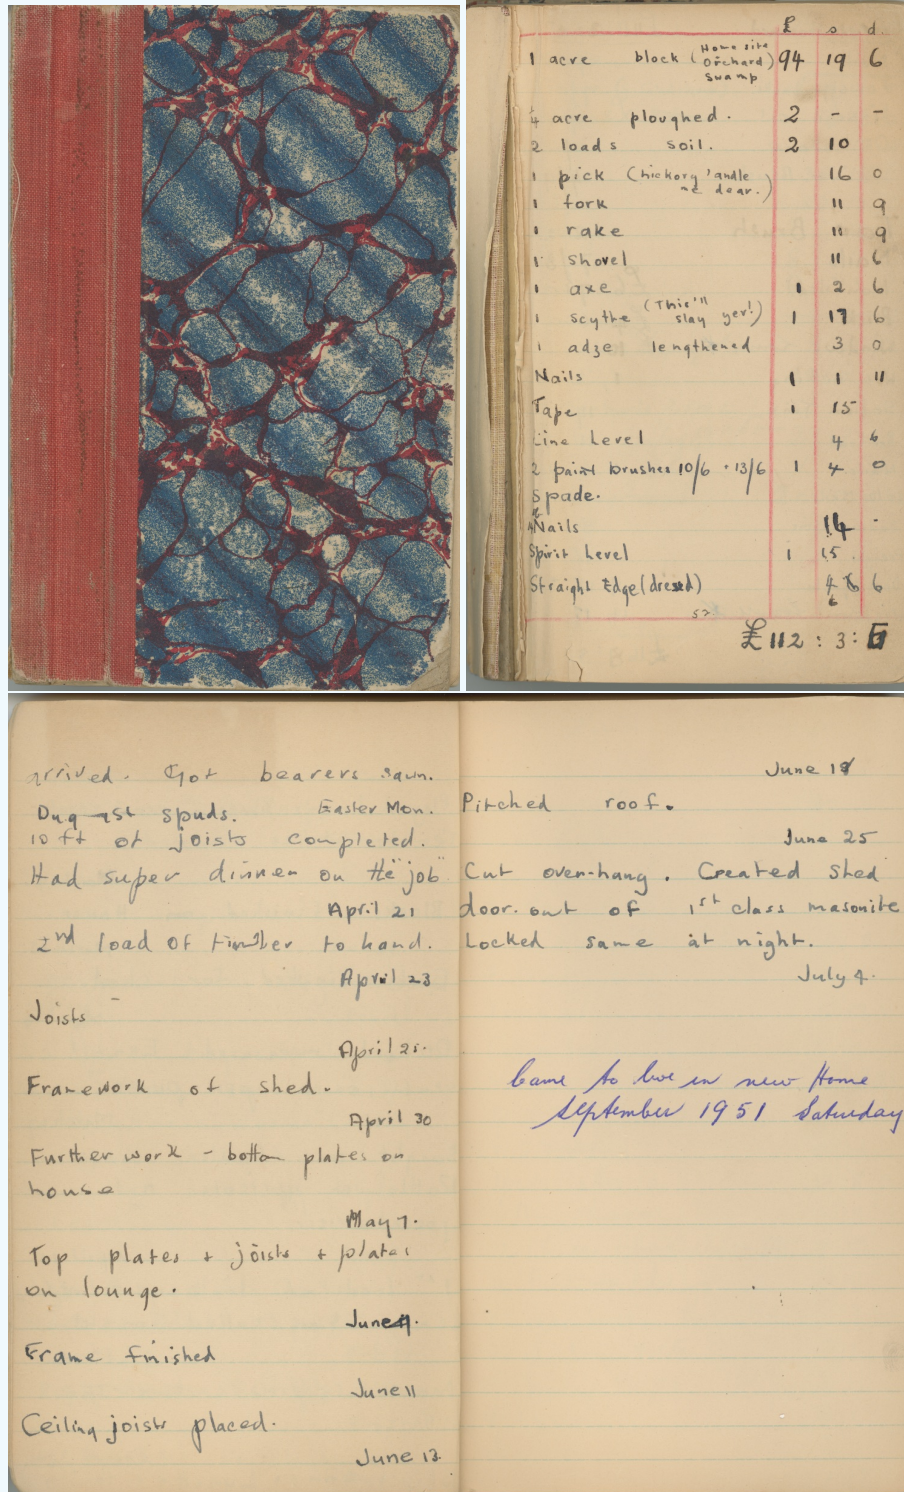 £ s d.
1 acre block (Home site Orchard swamp) 94 19 6
¼ acre ploughed. 2 - -
2 loads soil. 2 10
1 pick (hickory 'andle me dear.) 16 0
1 fork 11 9
1 rake 11 9
1 shovel 11 6
1 axe 1 2 6
1 scythe (This'll slay yer!) 1 17 6
1 adze lengthened 3 0
Nails 1 1 11
Tape 1 15
Line Level 4 6
2 paint brushes 10/6 · 13/6 1 4 0
Spade.
Nails 14 -
Spirit Level 1 15
Straight Edge (dressed) 6
£112 : 3 :
arrived. Got bearers sawn.
Dug 1st spuds. Easter Mon.
10 ft of joists completed.
Had super dinner on the "job"
April 21
2nd load of timber to hand.
April 23
Joists
April 25.
Framework of shed.
April 30
Further work - bottom plates on
house
May 7.
Top plates + joists + plates
on lounge.
June
Frame finished
June 11
Ceiling joists placed.
June 13
June 18
Pitched roof.
June 25
Cut over-hang. Created shed
door out of 1st class masonite
Locked same at night.
July 4.
Came to live in new Home
September 1951 Saturday